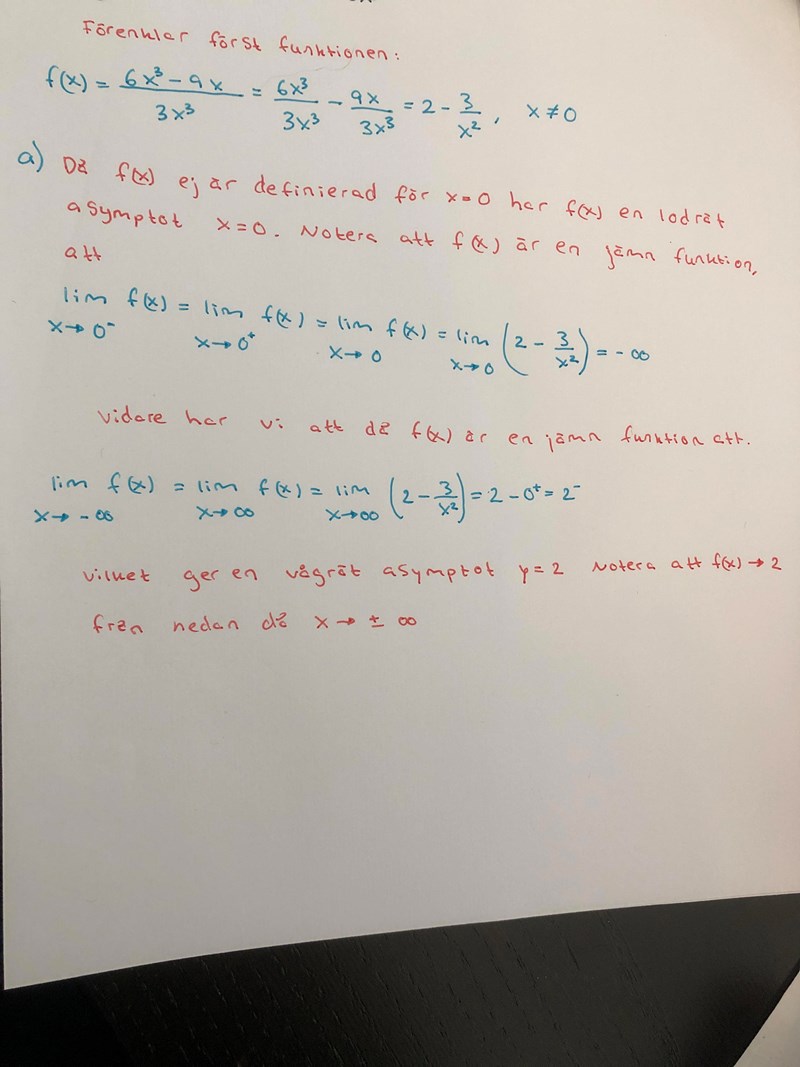 Förenklar först funktionen:
f(x) = (6x³ - 9x)/(3x³) = 6x³/3x³ - 9x/3x³ = 2 - 3/x², x ≠ 0
a) Då f(x) ej är definierad för x=0 har f(x) en lodrät
asymptot x=0. Notera att f(x) är en jämn funktion,
att
lim x→0⁻ f(x) = lim x→0⁺ f(x) = lim x→0 f(x) = lim x→0 (2 - 3/x²) = -∞
Vidare har vi att då f(x) är en jämn funktion att.
lim x→-∞ f(x) = lim x→∞ f(x) = lim x→∞ (2 - 3/x²) = 2 - 0⁺ = 2⁻
vilket ger en vågrät asymptot y=2 Notera att f(x) → 2
från nedan då x → ± ∞